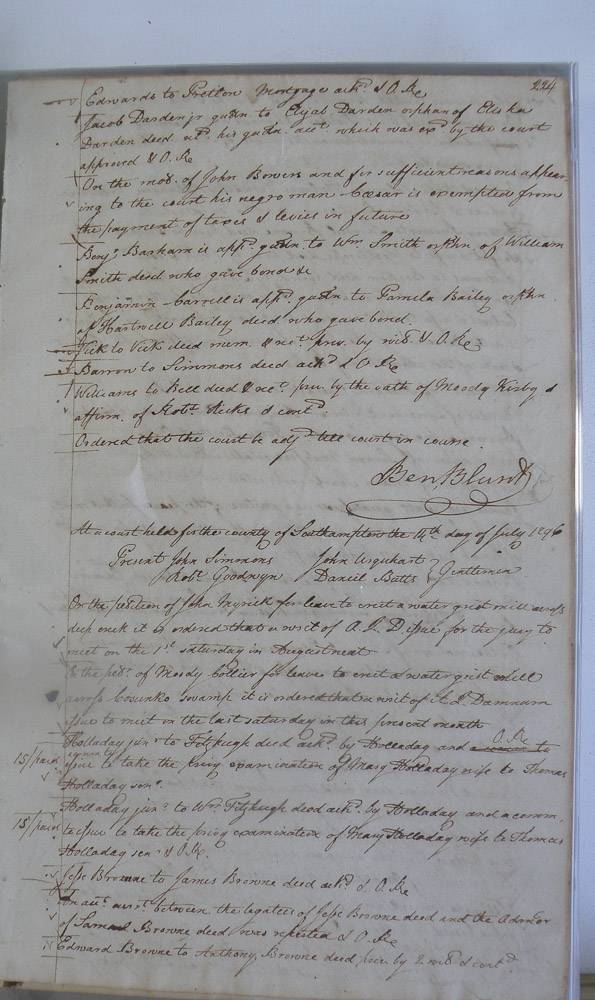 224
Edwards to Pretlow Mortgage ackd. & O. Re
Jacob Darden jr guardn to Elijah Darden orphan of Elisha
Darden decd retd. his guardn. acct. which was exd by the court
approved & O. Re
On the mot. of John Bowers and for sufficient reasons appear
ing to the court his negro man Caesar is exempted from
the payment of taxes & levies in future
Benja. Barham is appd. guardn. to Wm Smith orphn. of William
Smith decd who gave bond &c
Benjamin Carrell is appd. guardn. to Pamela Bailey orphn.
of Hartwell Bailey decd. who gave bond.
Vick to Vick deed mem. & rect. prov. by wits. & O. Re
Barrow to Simmons deed ackd & O Re
Williams to Bell deed & rect. prov. by the oath of Moody Kirby &
affirm. of Robt. Ricks & contd.
Ordered that the court be adjd. till court in course.
Ben. Blunt
At a court held for the county of Southampton the 14th day of July 1796
Present John Simmons John Urquhart
Robt. Goodwyn Daniel Batts Gentlemen
On the petition of John Myrick for leave to erect a water grist mill across
deep creek it is ordered that a writ of A. Q. D issue for the jury to
meet on the 1st saturday in August next
On the petn. of Moody Collier for leave to erect a water grist mill
across Cosunko swamp it is ordered that a writ of A. Q. Damnum
issue to meet on the last saturday in this present month
O. Re
Holladay junr to Fitzhugh deed ackd. by Holladay and a comm to
15/ paid issue to take the privy examination of Mary Holladay wife to Thomas
Holladay senr.
Holladay junr. to Wm. Fitzhugh deed ackd. by Holladay and a comm.
15/ paid to issue to take the privy examination of Mary Holladay wife to Thomas
Holladay senr & O. Re.
Jesse Browne to James Browne deed ackd. & O. Re
An acct. currt. between the legatees of Jesse Browne decd and the Admor
of Samuel Browne decd was returned & O Re
Edward Browne to Anthony Browne deed prov. by 2 wits & contd.